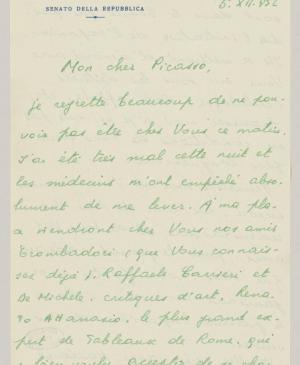 SENATO DELLA REPUBBLICA
5. XII. 952
Mon cher Picasso,
je regrette beaucoup de ne pou-
voir pas être chez Vous ce matin.
J'ai été très mal cette nuit et
les médecins m'ont empêché abso-
lument de me lever. A ma pla-
ce viendront chez Vous nos amis
Trombadori (que Vous connais-
sez déjà), Raffaele Carrieri et
De Micheli, critiques d'art, Rena-
to Attanasio, le plus grand ex-
pert de Tableaux de Rome, qui
a bien voulu accepter de se